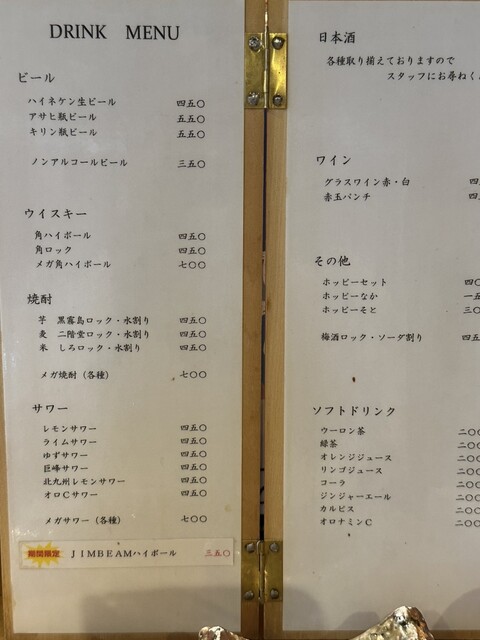 DRINK MENU
ビール
ハイネケン生ビール 四五〇
アサヒ瓶ビール 五五〇
キリン瓶ビール 五五〇
ノンアルコールビール 三五〇
ウイスキー
角ハイボール 四五〇
角ロック 四五〇
メガ角ハイボール 七〇〇
焼酎
芋 黒霧島ロック・水割り 四五〇
麦 二階堂ロック・水割り 四五〇
米 しろロック・水割り 四五〇
メガ焼酎（各種） 七〇〇
サワー
レモンサワー 四五〇
ライムサワー 四五〇
ゆずサワー 四五〇
巨峰サワー 四五〇
北九州レモンサワー 四五〇
オロCサワー 四五〇
メガサワー（各種） 七〇〇
期間限定 JIMBEAMハイボール 三五〇
日本酒
各種取り揃えておりますので
スタッフにお尋ねく
ワイン
グラスワイン赤・白 四
赤玉パンチ 四
その他
ホッピーセット 四〇
ホッピーなか 一五
ホッピーそと 三〇
梅酒ロック・ソーダ割り 四五
ソフトドリンク
ウーロン茶 二〇〇
緑茶 二〇〇
オレンジジュース 二〇〇
リンゴジュース 二〇〇
コーラ 二〇〇
ジンジャーエール 二〇〇
カルピス 二〇〇
オロナミンC 二〇〇